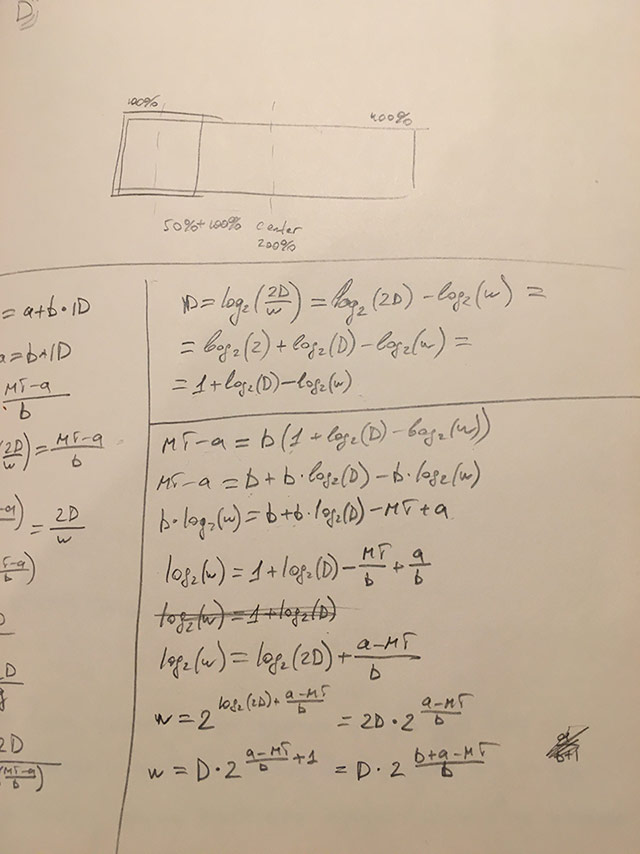 D
100%
400%
50%+100% center
200%
= a+b·ID
a=b·ID
MT-a/b
2D/w) = MT-a/b
-a) = 2D/w
T-a/b)
D
2D
2D
MT-a/b)
ID = log₂(2D/w) = log₂(2D) - log₂(w) =
= log₂(2) + log₂(D) - log₂(w) =
= 1 + log₂(D) - log₂(w)
MT-a = b(1 + log₂(D) - log₂(w))
MT-a = b + b·log₂(D) - b·log₂(w)
b·log₂(w) = b + b·log₂(D) - MT + a
log₂(w) = 1 + log₂(D) - MT/b + a/b
log₂(w) = 1 + log₂(D)
log₂(w) = log₂(2D) + a-MT/b
w = 2^(log₂(2D) + a-MT/b) = 2D·2^(a-MT/b)
w = D·2^(a-MT/b + 1) = D·2^(b+a-MT/b)
b+1